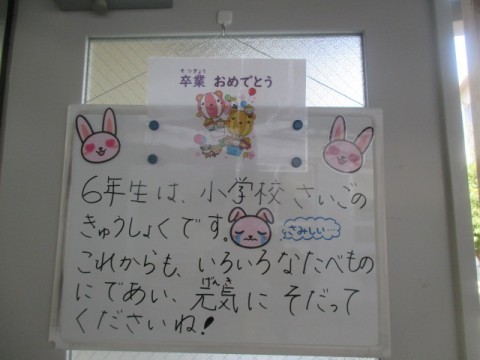 そつぎょう
卒業 おめでとう
6年生は、小学校 さいごの
きゅうしょくです。
さみしい…
これからも、いろいろなたべもの
にであい、元気に そだって
げんき
くださいね!